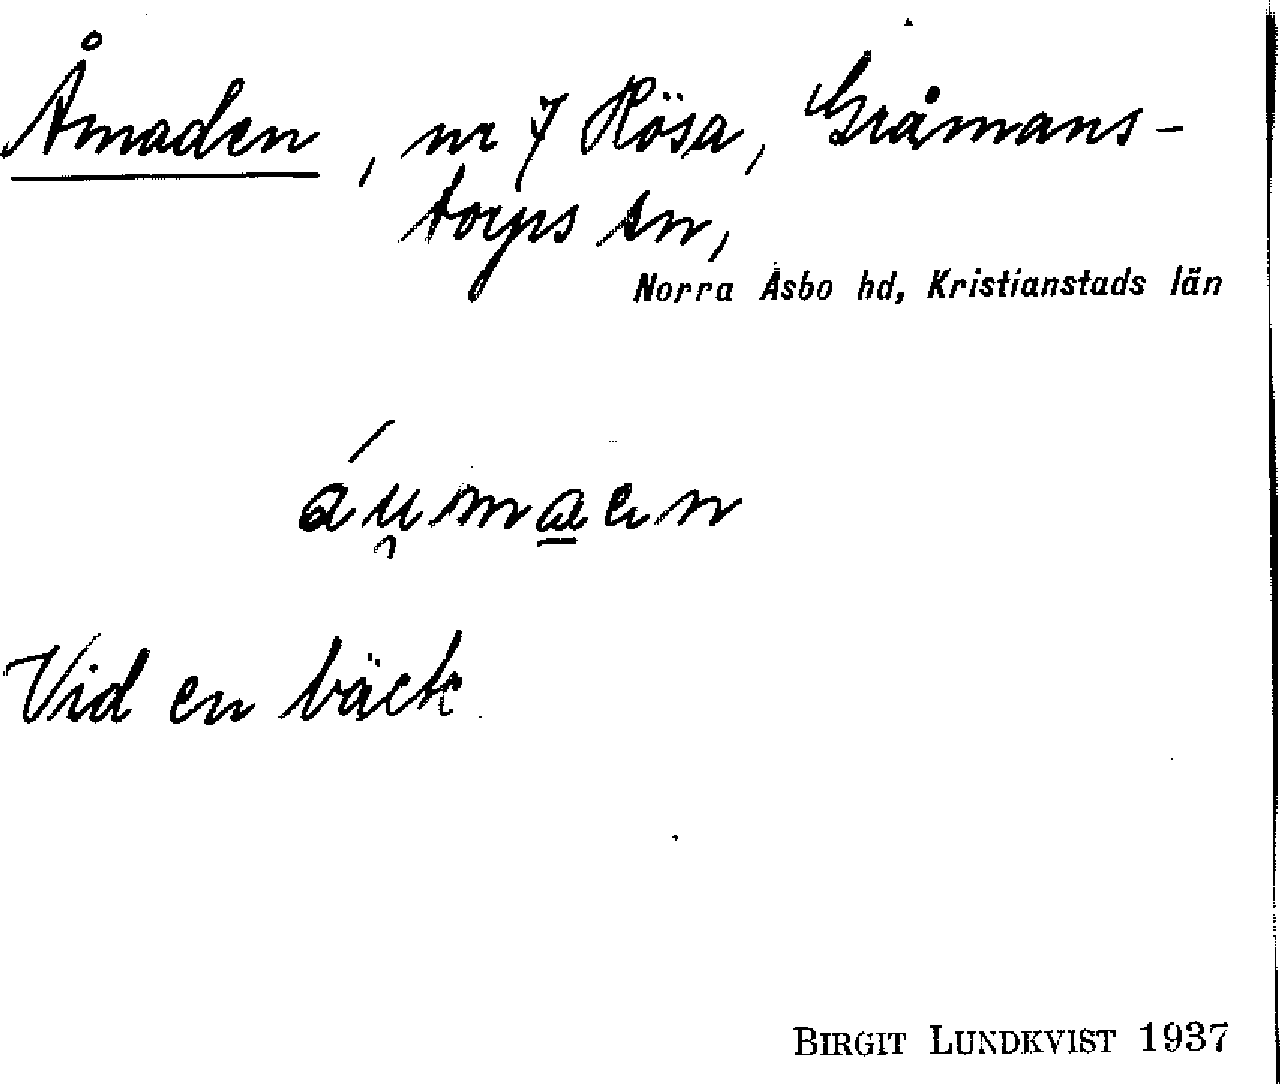 Åmaden, nr 7 Hösa, Gråmans-
torps sn,
Norra Åsbo hd, Kristianstads län
áu̯ma̲en
Vid en bäck
BIRGIT LUNDKVIST 1937